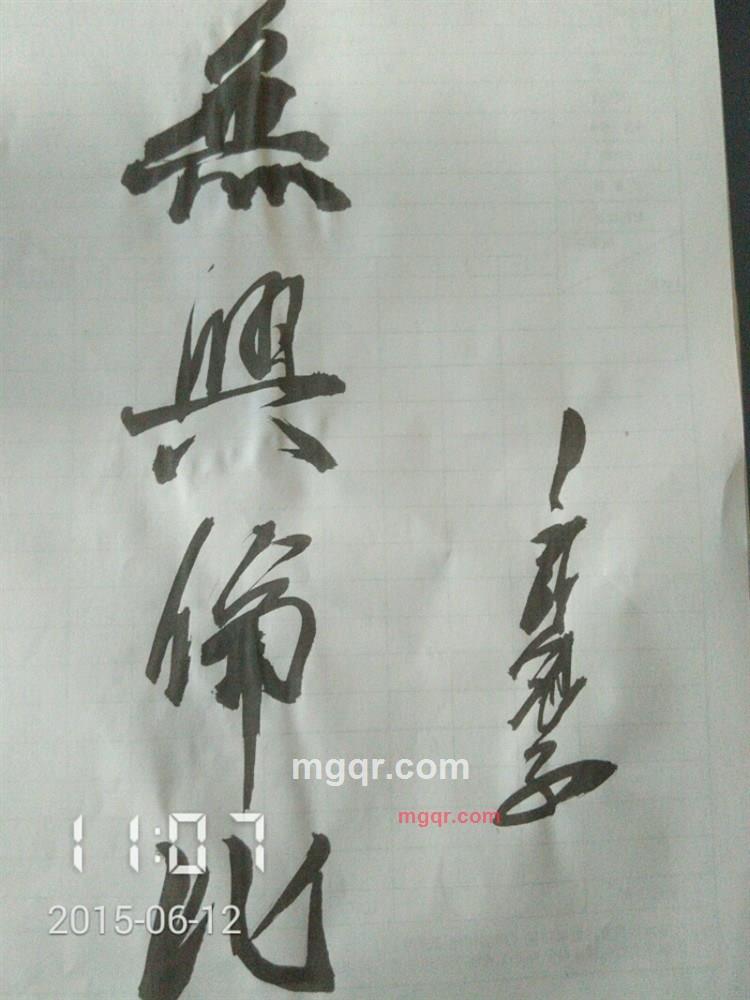 無與倫比
mgqr.com
mgqr.com
11:07
2015-06-12